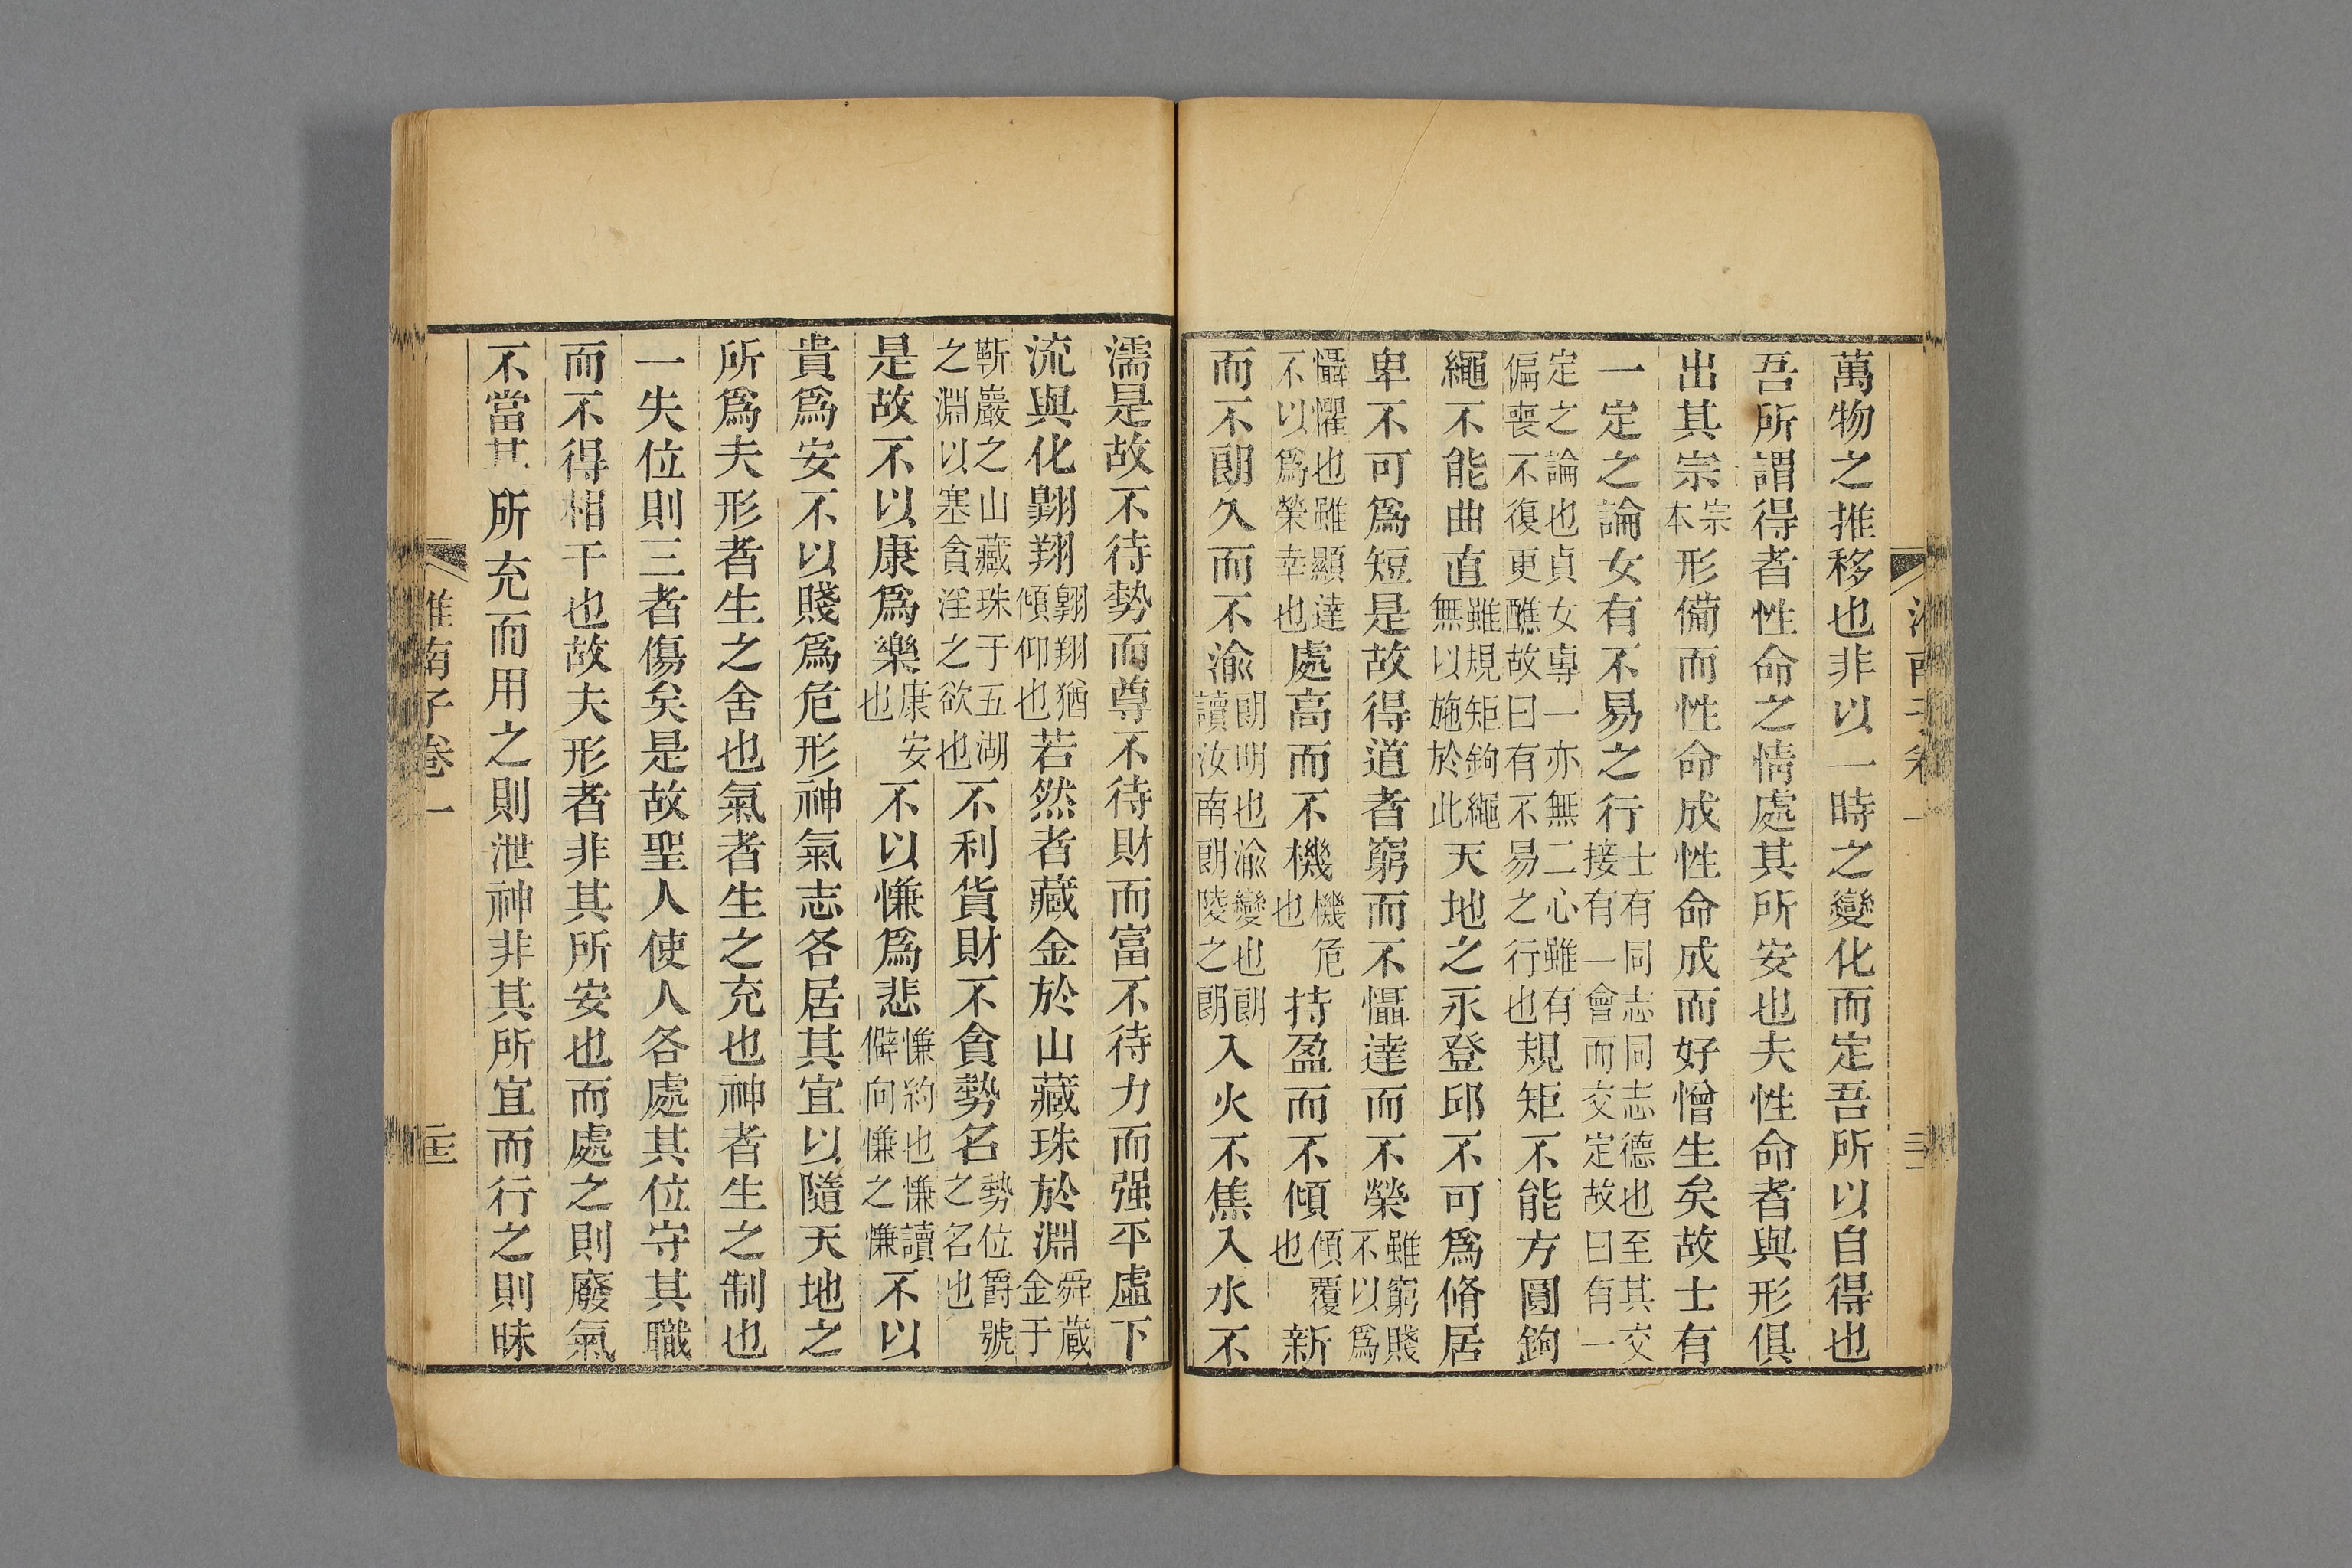 萬物之推移也非以一時之變化而定吾所以自得也
吾所謂得者性命之情處其所安也夫性命者與形俱
出其宗宗本形備而性命成性命成而好憎生矣故士有
一定之論女有不易之行士有同志同志德也至其交接有一會而交定故曰有一
定之論也貞女專一亦無二心雖有偏喪不復更醮故曰有不易之行也規矩不能方圓鉤
繩不能曲直雖規矩鉤繩無以施於此天地之永登邱不可爲脩居
卑不可爲短是故得道者窮而不懾達而不榮雖窮賤不以爲
懾懼也雖顯達不以爲榮幸也處高而不機機危也持盈而不傾傾覆也新
而不朗久而不渝朗明也渝變也朗讀汝南朗陵之朗入火不焦入水不
濡是故不待勢而尊不待財而富不待力而强平虛下
流與化翱翔翱翔猶傾仰也若然者藏金於山藏珠於淵舜藏金于
嶄巖之山藏珠于五湖之淵以塞貪淫之欲也不利貨財不貪勢名勢位爵號之名也
是故不以康爲樂康安也不以慊爲悲慊約也慊讀僻向慊之慊不以
貴爲安不以賤爲危形神氣志各居其宜以隨天地之
所爲夫形者生之舍也氣者生之充也神者生之制也
一失位則三者傷矣是故聖人使人各處其位守其職
而不得相干也故夫形者非其所安也而處之則廢氣
不當其所充而用之則泄神非其所宜而行之則昧
淮南子卷一